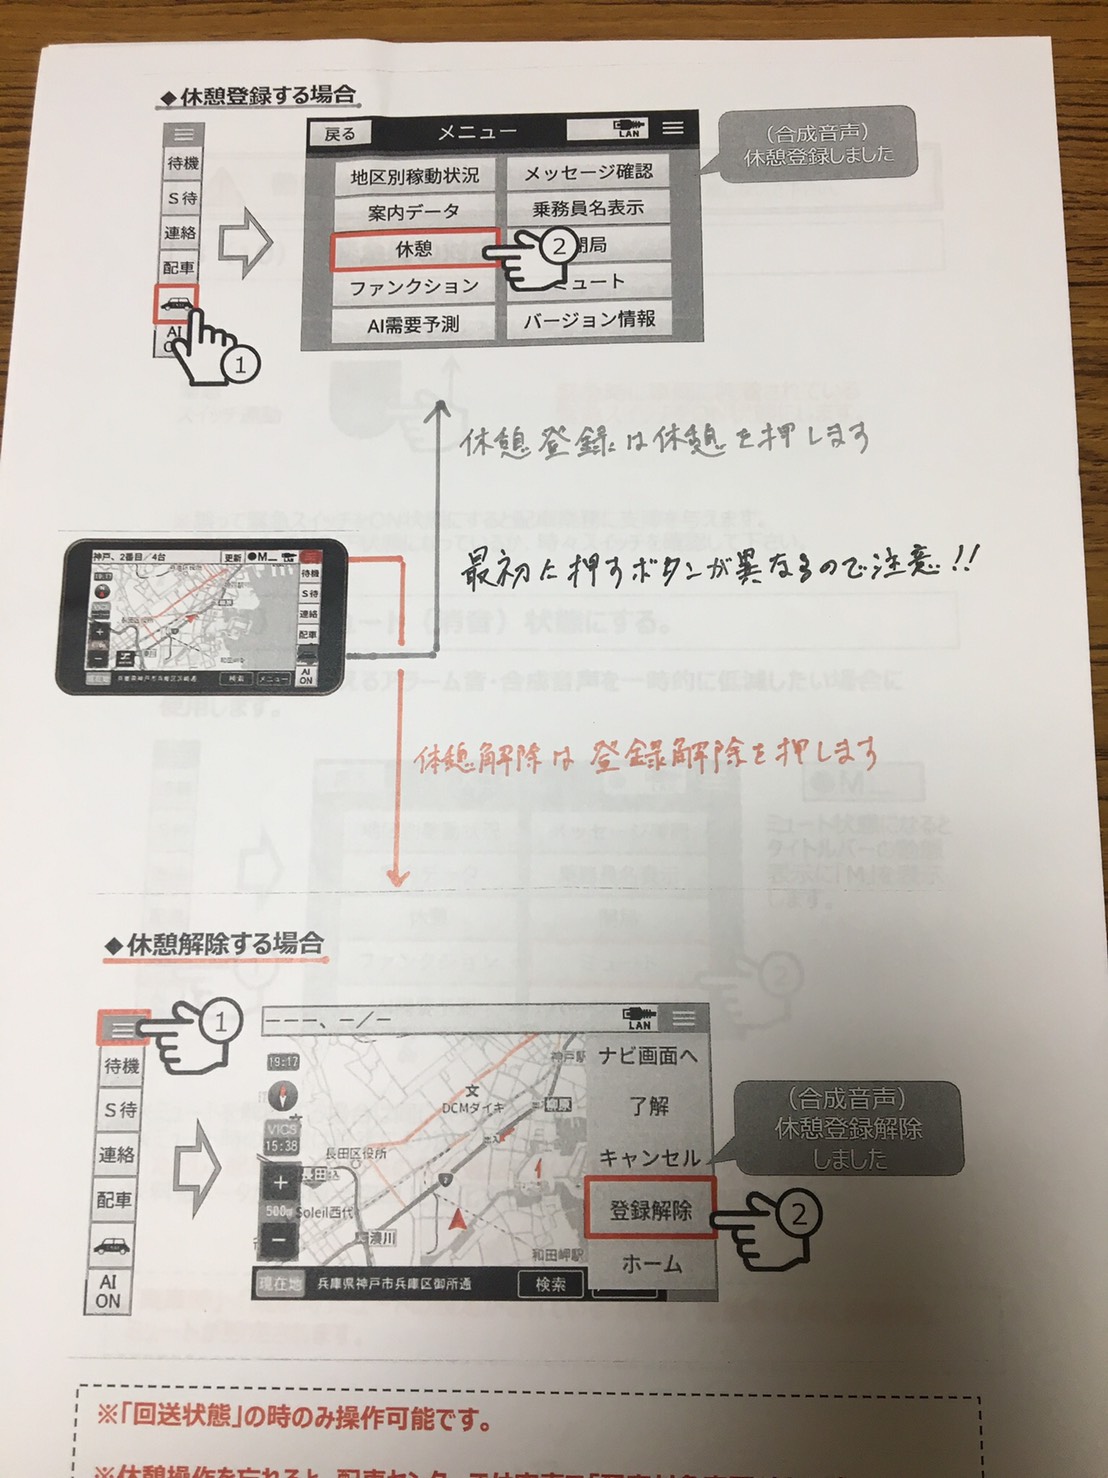 ◆休憩登録する場合
待機
S待
連絡
配車
AI
①
戻る
メニュー
LAN
地区別稼動状況
メッセージ確認
案内データ
乗務員名表示
休憩
②
局
ファンクション
ミュート
AI需要予測
バージョン情報
(合成音声)
休憩登録しました
休憩登録は休憩を押します
神戸、2番目/4台
更新
●M
待機
S待
連絡
配車
AI
ON
検索
メニュー
最初に押すボタンが異なるので注意!!
休憩解除は登録解除を押します
◆休憩解除する場合
①
待機
S待
連絡
配車
AI
ON
---、-/-
LAN
19:17
VICS
15:38
+
500m
-
神戸駅
DCMダイキ
柳原
長田区役所
長田
Soleil西代
湊川
和田岬駅
現在地
兵庫県神戸市兵庫区御所通
検索
ナビ画面へ
了解
キャンセル
登録解除
ホーム
②
(合成音声)
休憩登録解除
しました
※「回送状態」の時のみ操作可能です。
※休憩操作を忘れると、配車センター